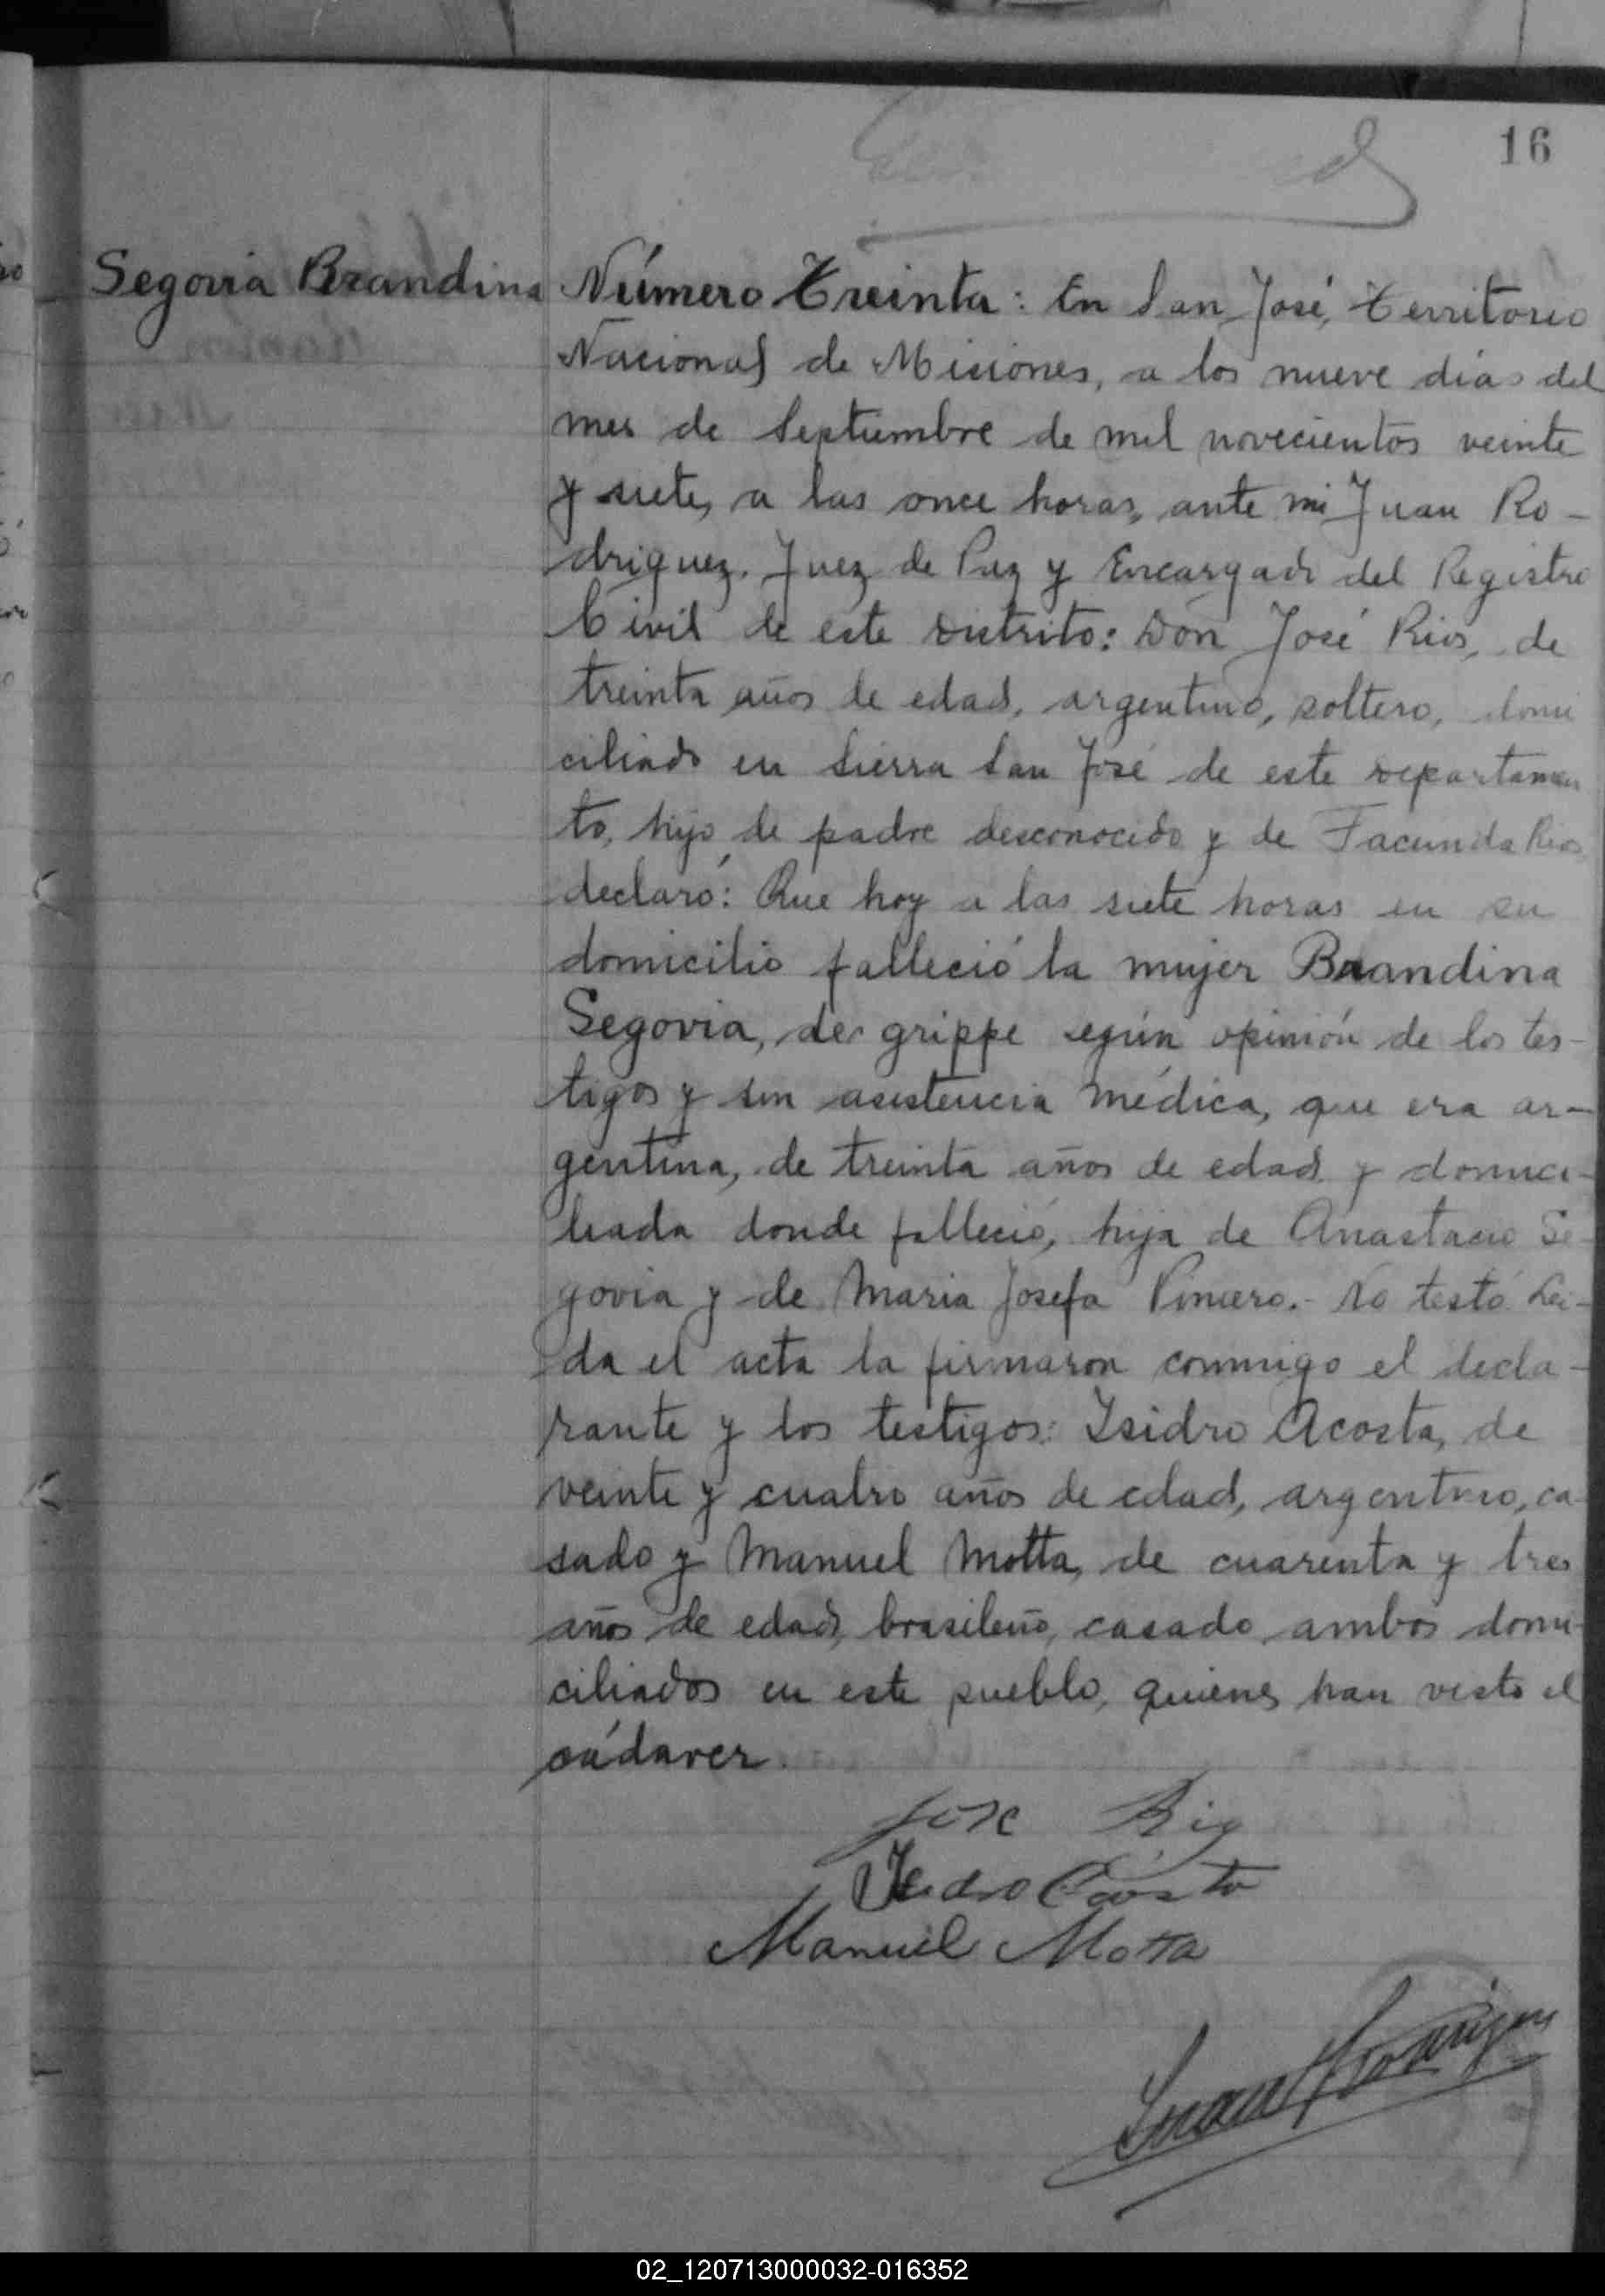 16
Segovia Brandina
Número Treinta: En San José, Territorio
Nacional de Misiones, a los nueve dias del
mes de Septiembre de mil novecientos veinte
y siete, a las once horas, ante mi Juan Ro-
driguez. Juez de Paz y Encargado del Registro
Civil de este Distrito: Don José Rios, de
treinta años de edad, argentino, soltero, domi
ciliado en Sierra San José de este departamen
to, hijo de padre desconocido y de Facunda Rios
declaró: Que hoy a las siete horas en su
domicilio falleció la mujer Brandina
Segovia, de grippe según opinión de los tes-
tigos y sin asistencia médica, que era ar-
gentina, de treinta años de edad y domici-
liada donde falleció, hija de Anastacio Se-
govia y de Maria Josefa. No testó Lei-
da el acta la firmaron conmigo el decla-
rante y los testigos: Isidro Acosta, de
veinte y cuatro años de edad, argentino, ca-
sado y Manuel Motta, de cuarenta y tres
años de edad, brasileño, casado, ambos domi-
ciliados en este pueblo, quienes han visto el
cádaver.
Jose Rio
Isidro Acosta
Manuel Motta
Juan Rodriguez
02_120713000032-016352